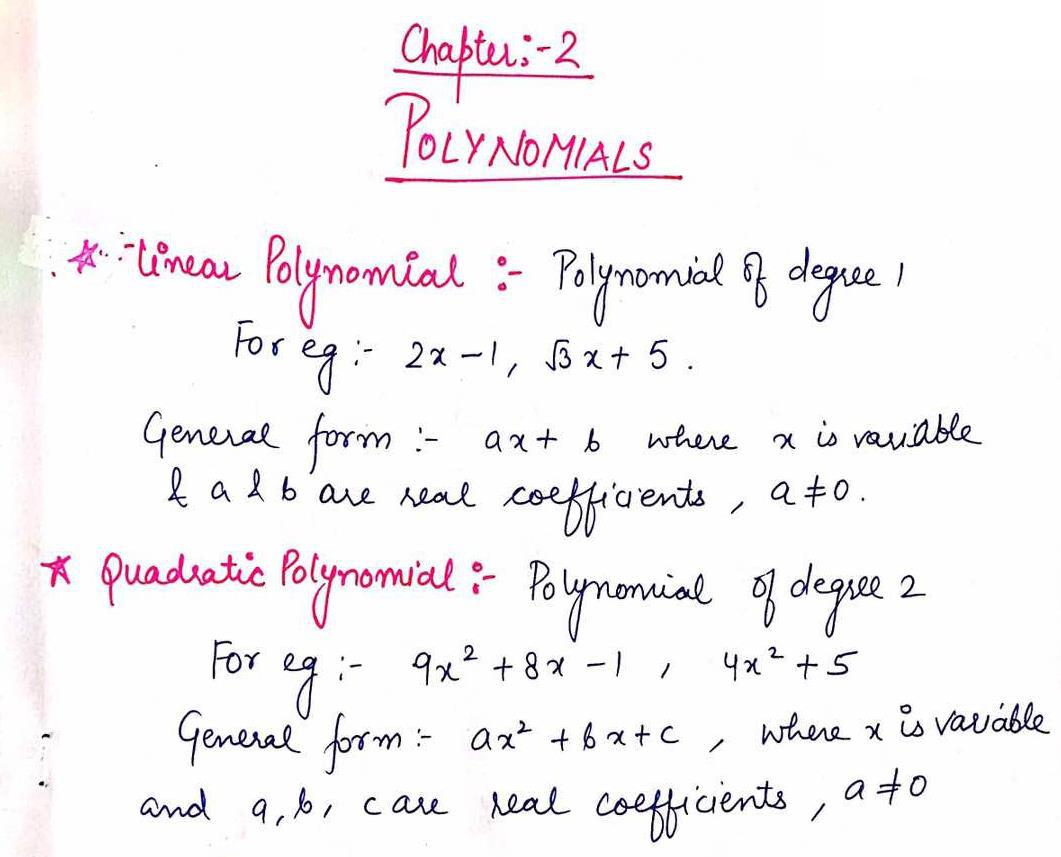 Chapter:-2
POLYNOMIALS
* Linear Polynomial :- Polynomial of degree 1
For eg :- 2x-1, √3x + 5.
General form :- ax + b where x is variable
& a & b are real coefficients, a ≠ 0.
* Quadratic Polynomial :- Polynomial of degree 2
For eg :- 9x² + 8x - 1, 4x² + 5
General form :- ax² + bx + c, where x is variable
and a, b, c are real coefficients, a ≠ 0